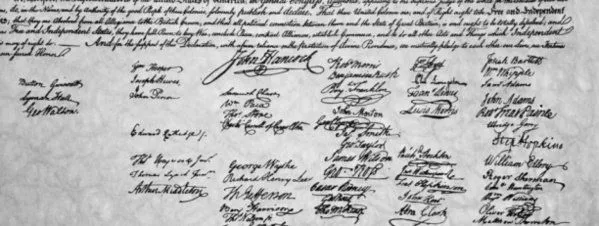 in the Name, and by Authority of the good People of these
that they are Absolved from all Allegiance to the British Crown, and that all political connection between them and the State of Great Britain, is and ought to be totally dissolved; and
Free and Independent States, they have full Power to levy War, conclude Peace, contract Alliances, establish Commerce, and to do all other Acts and Things which Independent
may of right do. And for the support of this Declaration, with a firm reliance on the Protection of divine Providence, we mutually pledge to each other our Lives, our Fortunes
our sacred Honor.
John Hancock
Button Gwinnett
Lyman Hall
Geo Walton
Wm Hooper
Joseph Hewes
John Penn
Edward Rutledge
Thos Heyward Junr
Thomas Lynch Junr
Arthur Middleton
Samuel Chase
Wm Paca
Thos Stone
Charles Carroll of Carrollton
George Wythe
Richard Henry Lee
Th Jefferson
Benj Harrison
Thos Nelson jr
Robt Morris
Benjamin Rush
Benj Franklin
John Morton
Geo Clymer
Jas Smith
Geo Taylor
James Wilson
Geo Ross
Caesar Rodney
Geo Read
Tho M:Kean
Phil Livingston
Frans Lewis
Lewis Morris
Richd Stockton
Jno Witherspoon
Fras Hopkinson
John Hart
Abra Clark
Josiah Bartlett
Wm Whipple
Saml Adams
John Adams
Robt Treat Paine
Elbridge Gerry
Step Hopkins
William Ellery
Roger Sherman
Saml Huntington
Wm Williams
Oliver Wolcott
Matthew Thornton